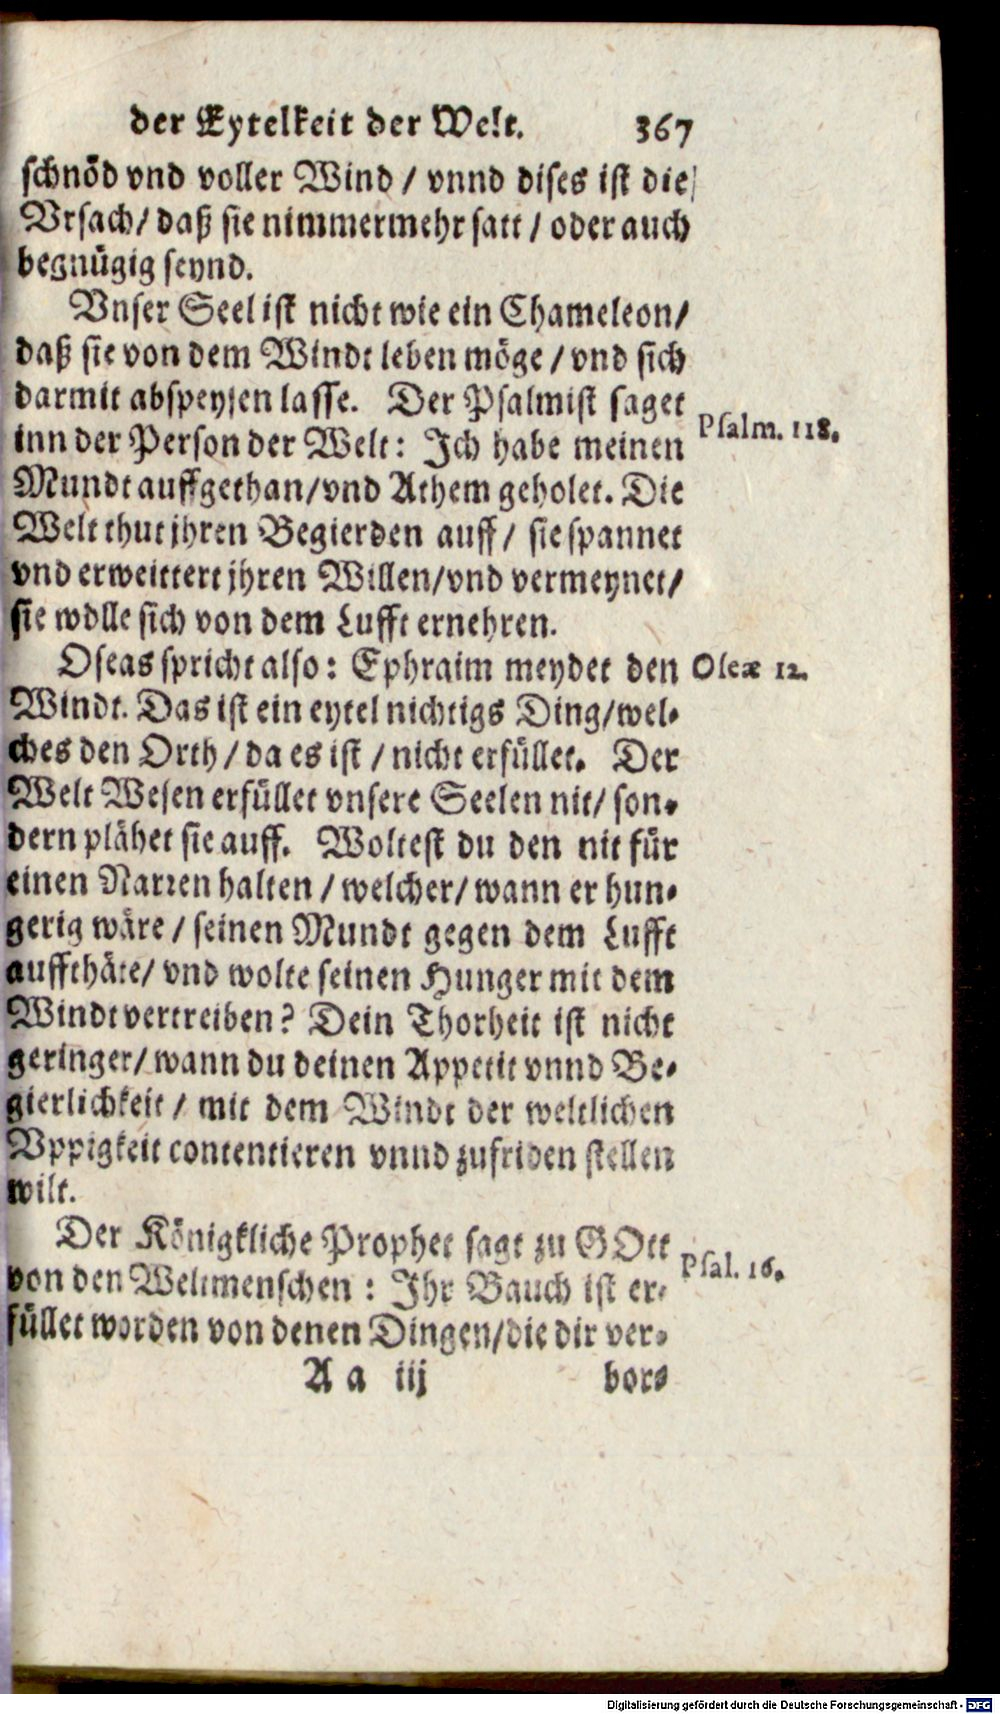 der Eytelkeit der Welt. 367
schnöd vnd voller Wind / vnnd dises ist die
Vrsach/ daß sie nimmermehr satt / oder auch
begnügig seynd.
Vnser Seel ist nicht wie ein Chameleon/
daß sie von dem Windt leben möge / vnd sich
darmit abspeysen lasse. Der Psalmist saget
Psalm. 118.
inn der Person der Welt: Ich habe meinen
Mundt auffgethan/vnd Athem geholet. Die
Welt thut jhren Begierden auff / sie spannet
vnd erweittert jhren Willen/vnd vermeynet/
sie wölle sich von dem Lufft ernehren.
Oseas spricht also: Ephraim meydet den Oseæ 12.
Windt. Das ist ein eytel nichtigs Ding/wel-
ches den Orth / da es ist / nicht erfüllet. Der
Welt Wesen erfüllet vnsere Seelen nit/ son-
dern plähet sie auff. Woltest du den nit für
einen Narren halten / welcher/ wann er hun-
gerig wäre / seinen Mundt gegen dem Lufft
auffthäte/ vnd wolte seinen Hunger mit dem
Windt vertreiben? Dein Thorheit ist nicht
geringer/ wann du deinen Appetit vnnd Be-
gierlichkeit / mit dem Windt der weltlichen
Vppigkeit contentieren vnnd zufriden stellen
wilt.
Der Königkliche Prophet sagt zu GOtt
Psal. 16.
von den Weltmenschen : Ihr Bauch ist er-
füllet worden von denen Dingen/die dir ver-
A a iij bor-
Digitalisierung gefördert durch die Deutsche Forschungsgemeinschaft - DFG